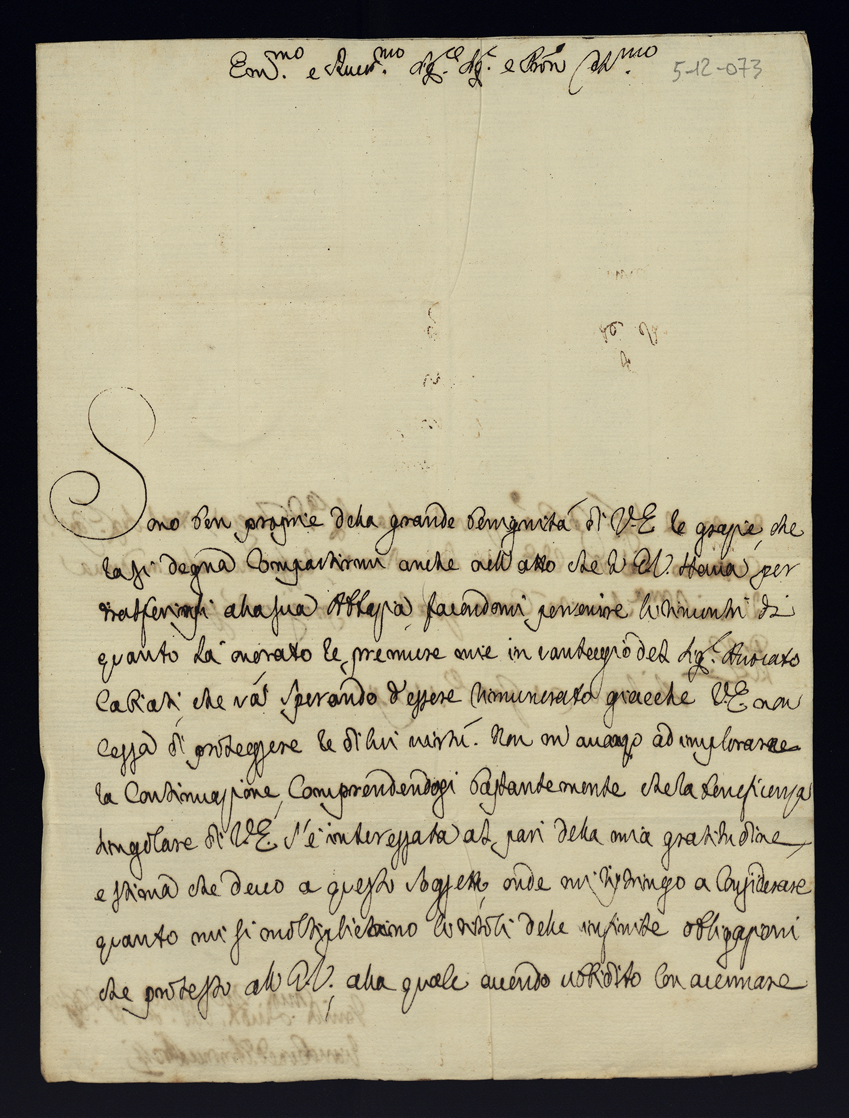 Em.mo e Rever.mo Sig.e Sig.e e Pron Col.mo
5-12-073
Sono ben proprie della grande benignità di V.E le grazie, che
la si degna Compartirmi anche nell'atto che l'E.V. stava per
trasferirsi alla sua Abbazia, facendomi pervenire li rincontri di
quanto hà onorato le premure mie in vantaggio del Sig.e Avocato
che và sperando d'essere rimunerato giacche V.E non
cessa di proteggere le di lui virtù. Non m'avanzo ad implorarne
la Continuazione, Comprendendosi bastantemente che la beneficenza
singolare di V.E s'è interessata al pari della mia gratitudine,
e stima che devo a questo soggetto, onde mi ristringo a Considerare
quanto mi si moltiplichino li titoli delle infinite obbligazioni
che professo all'E.V., alla quale avendo ubbidito con accennare